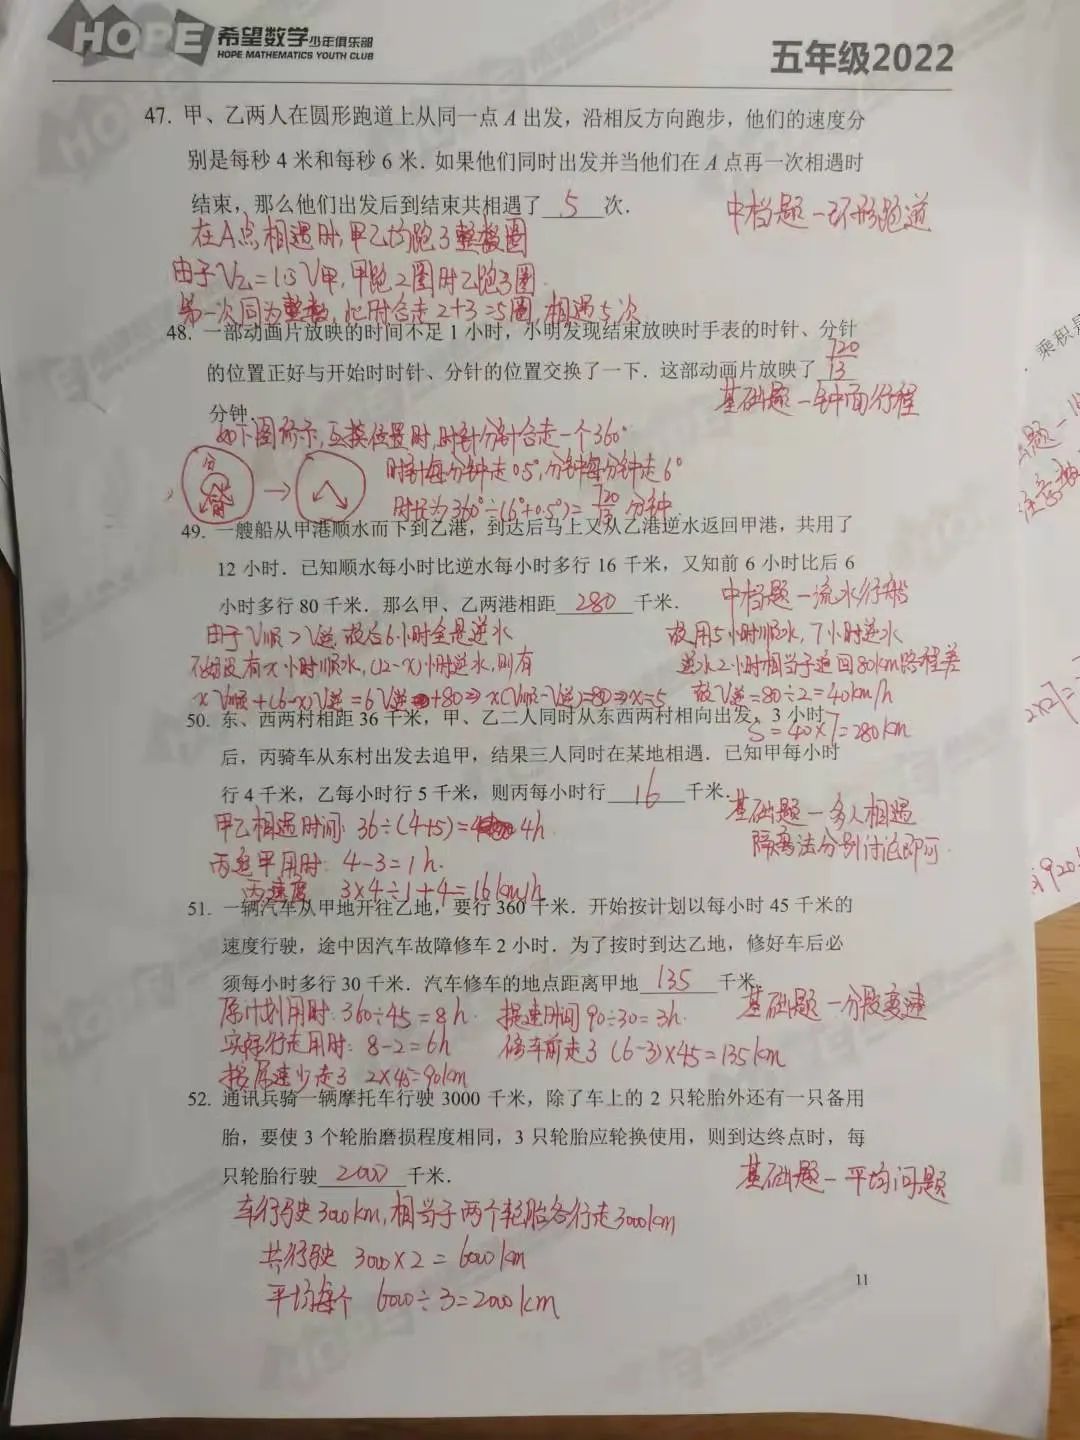 HOPE 希望数学少年俱乐部
HOPE MATHEMATICS YOUTH CLUB
五年级2022
47. 甲、乙两人在圆形跑道上从同一点 A 出发，沿相反方向跑步，他们的速度分
别是每秒 4 米和每秒 6 米．如果他们同时出发并当他们在 A 点再一次相遇时
结束，那么他们出发后到结束共相遇了 5 次．
中档题—环形跑道
在A点相遇时,甲乙均跑了整数圈
由于V乙=1.5V甲,甲跑2圈时乙跑3圈.
第一次同为整数,此时合走2+3=5圈,相遇5次
48. 一部动画片放映的时间不足 1 小时，小明发现结束放映时手表的时针、分针
的位置正好与开始时时针、分针的位置交换了一下．这部动画片放映了 720/13
分钟．
基础题—钟面行程
如下图所示,互换位置时,时针分针合走一个360°
分
时
时针每分钟走0.5°,分针每分钟走6°
时长为360°÷(6°+0.5°)=720/13分钟
49. 一艘船从甲港顺水而下到乙港，到达后马上又从乙港逆水返回甲港，共用了
12 小时．已知顺水每小时比逆水每小时多行 16 千米，又知前 6 小时比后 6
小时多行 80 千米．那么甲、乙两港相距 280 千米．
中档题—流水行船
由于V顺>V逆,故后6小时全是逆水
不妨设有x小时顺水,(12-x)小时逆水,则有
xV顺+(6-x)V逆=6V逆+80⇒x(V顺-V逆)=80⇒x=5
故用5小时顺水,7小时逆水
逆水2小时相当于追回80km路程差
故V逆=80÷2=40km/h
S=40×7=280km
50. 东、西两村相距 36 千米，甲、乙二人同时从东西两村相向出发，3 小时
后，丙骑车从东村出发去追甲，结果三人同时在某地相遇．已知甲每小时
行 4 千米，乙每小时行 5 千米，则丙每小时行 16 千米．
基础题—多人相遇
隔离法分别讨论即可.
甲乙相遇时间: 36÷(4+5)=4h
丙追甲用时: 4-3=1h.
丙速度 3×4÷1+4=16km/h
51. 一辆汽车从甲地开往乙地，要行 360 千米．开始按计划以每小时 45 千米的
速度行驶，途中因汽车故障修车 2 小时．为了按时到达乙地，修好车后必
须每小时多行 30 千米．汽车修车的地点距离甲地 135 千米．
基础题—分段变速
原计划用时: 360÷45=8h.
实际行走用时: 8-2=6h
按原速少走了 2×45=90km
提速时间 90÷30=3h.
修车前走了 (6-3)×45=135km
52. 通讯兵骑一辆摩托车行驶 3000 千米，除了车上的 2 只轮胎外还有一只备用
胎，要使 3 个轮胎磨损程度相同，3 只轮胎应轮换使用，则到达终点时，每
只轮胎行驶 2000 千米．
基础题—平均问题
车行驶3000km,相当于两个轮胎各行走3000km
共行驶 3000×2=6000km
平均每个 6000÷3=2000km
11
乘积是